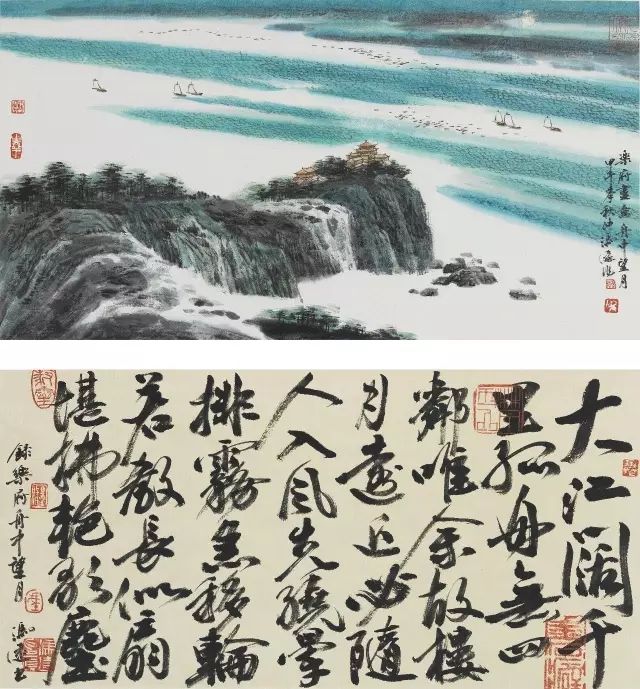 樂府畫意舟中望月
甲午季秋
大江闊千
里孤舟無四
鄰唯余故樓
月遠近必隨
人入風先繞暈
排霧急移輪
若教長似扇
堪拂艷歌塵
錄樂府舟中望月 馮遠書